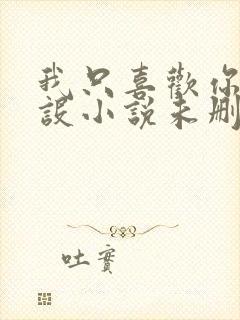 我只喜歡你
設小說未刪
吐實